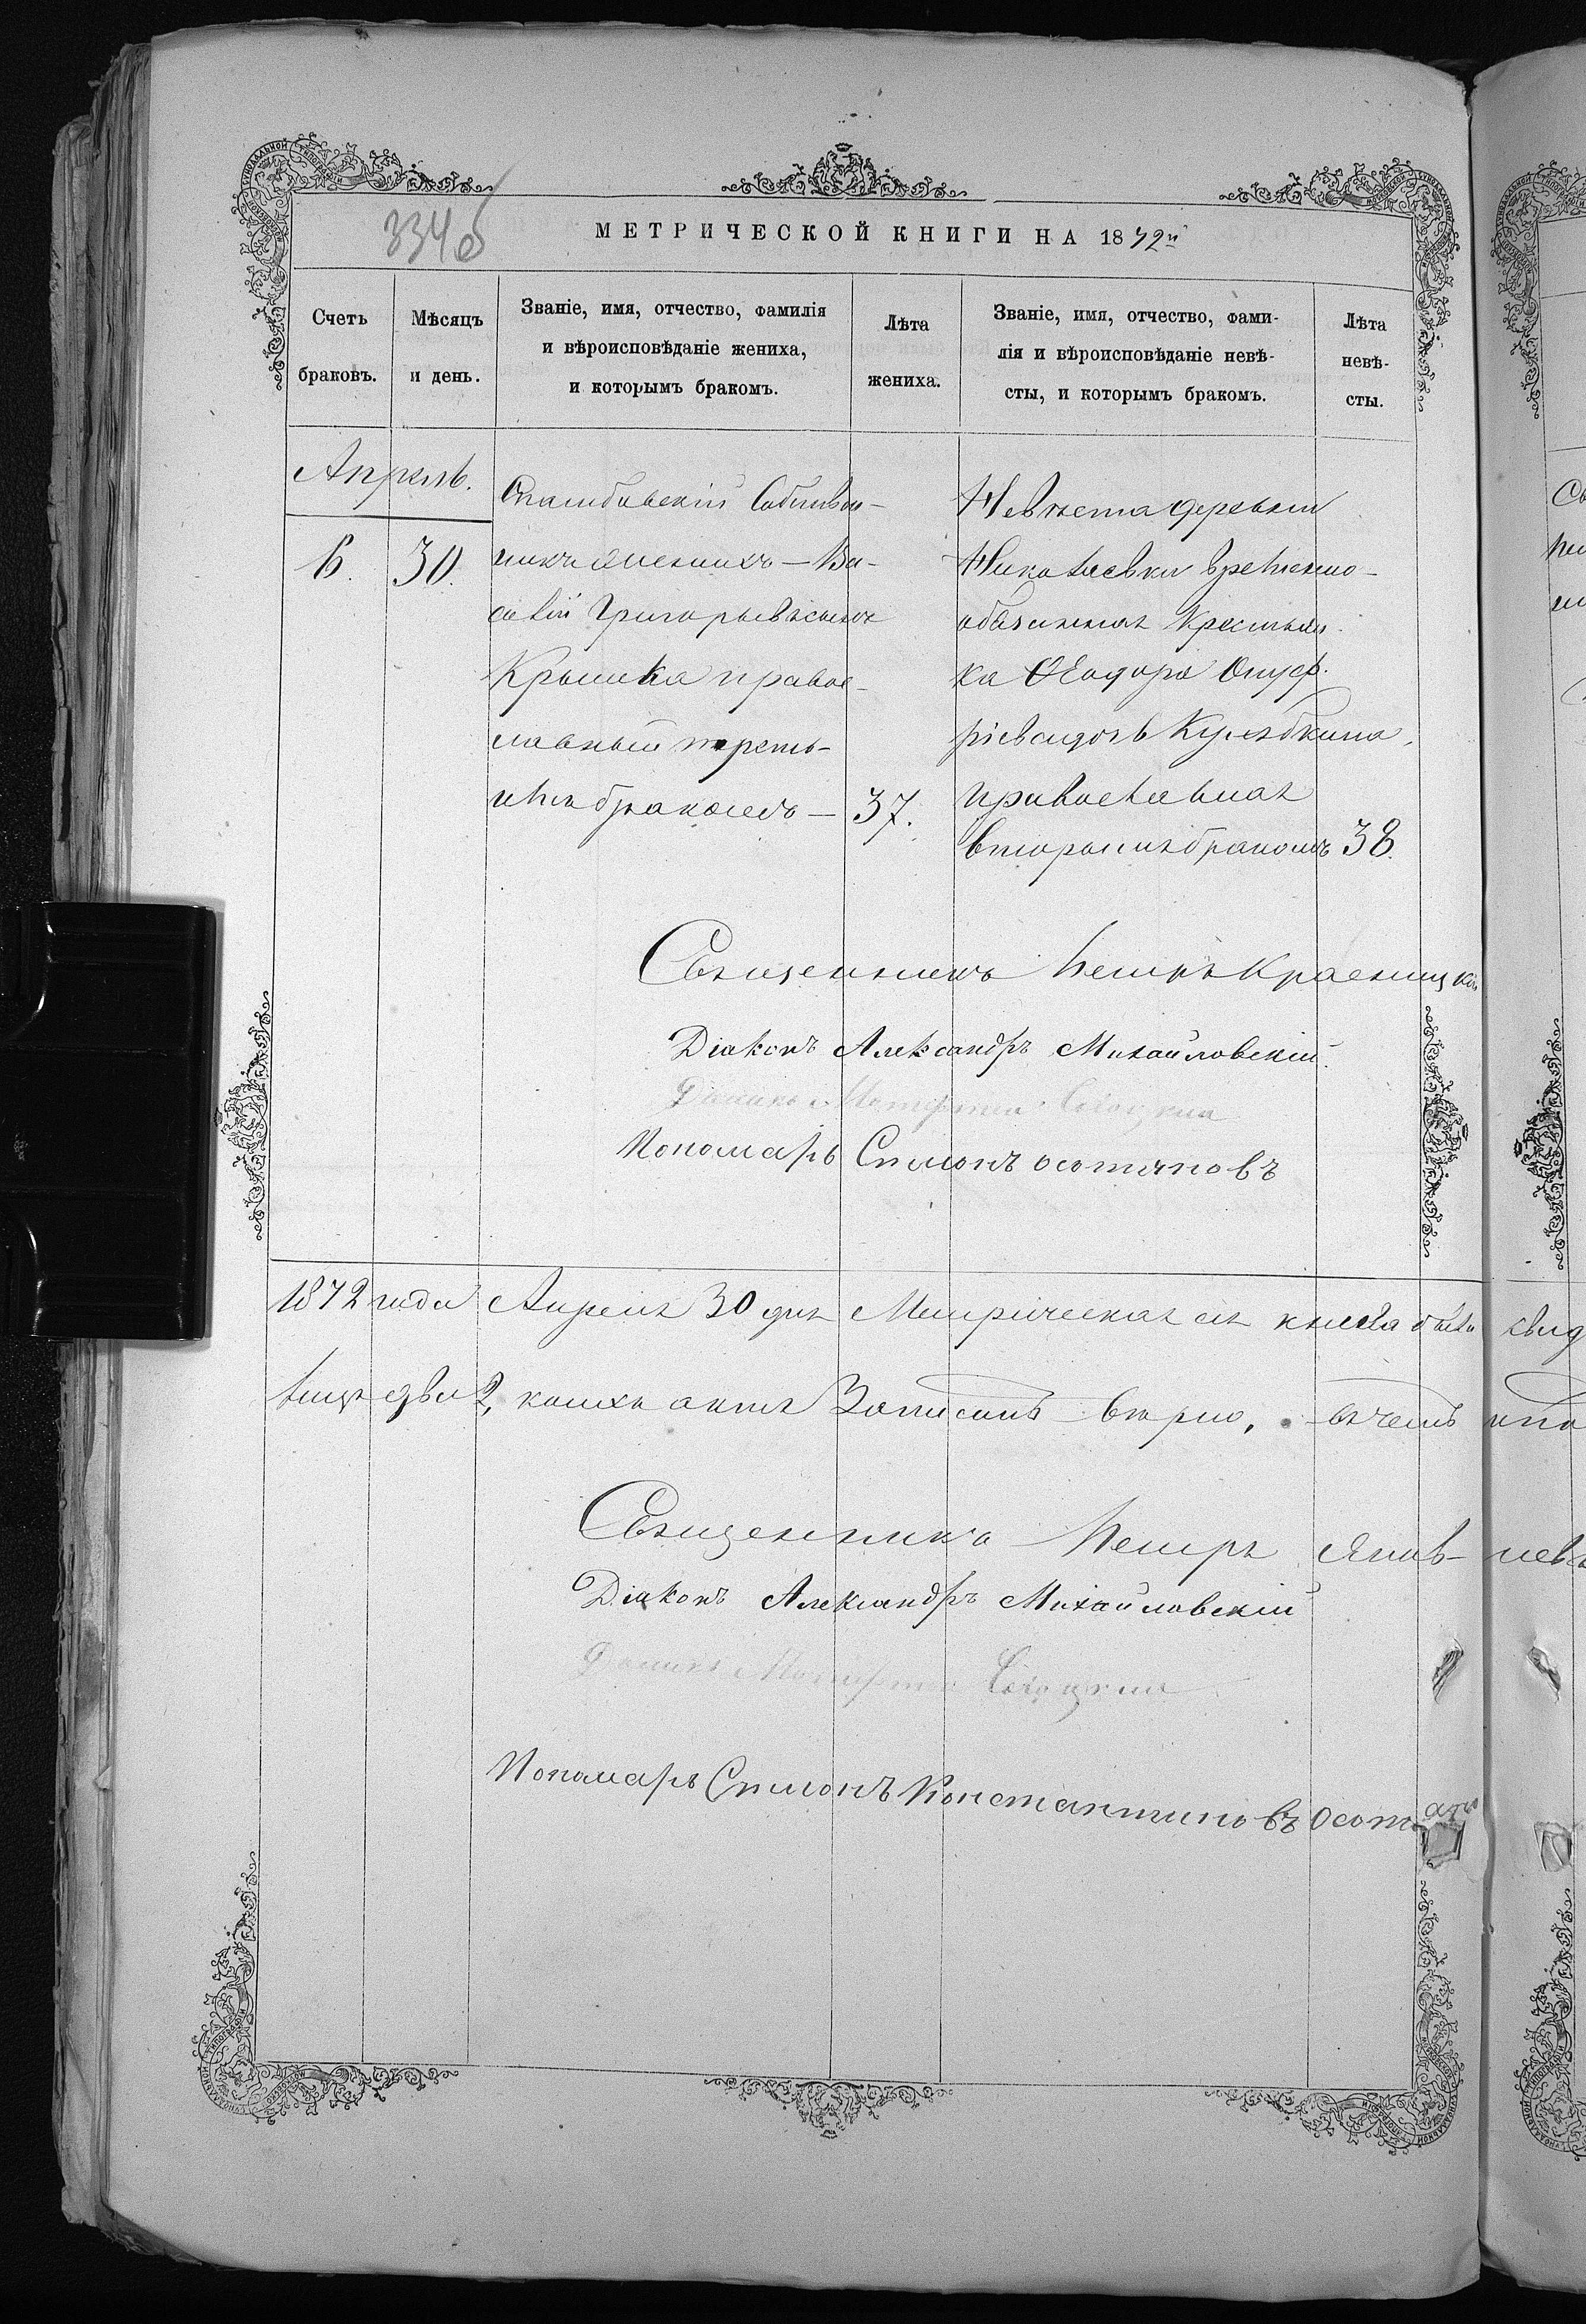 334об
МЕТРИЧЕСКОЙ КНИГИ НА 1872й
Счетъ браковъ.
Мѣсяцъ и день.
Званіе, имя, отчество, фамилія и вѣроисповѣданіе жениха, и которымъ бракомъ.
Лѣта жениха.
Званіе, имя, отчество, фамилія и вѣроисповѣданіе невѣсты, и которымъ бракомъ.
Лѣта невѣсты.
Апрель.
6. 30.
Собствен-
никъ женихъ — Ва-
силій Григорьевъ сынъ
Крышка правос-
лавный треть-
имъ бракомъ — 37.
Невѣста деревни
Николаевки временно-
обязанная Крестьян
ка Ѳеодора Онуф.
ріева дочь
православная
вторымъ бракомъ 38.
Священникъ Петръ Красницкій
Діаконъ Александръ Михайловскій.
Дьячокъ
Пономарь Симонъ Осотяновъ
1872 года Апреля 30 дня Метрическая сія книга была
два 2, коихъ актъ Записанъ верно, въ чемъ
Священникъ Петръ
Діаконъ Александръ Михайловскій
Дьячокъ
Пономарь Симонъ Константиновъ